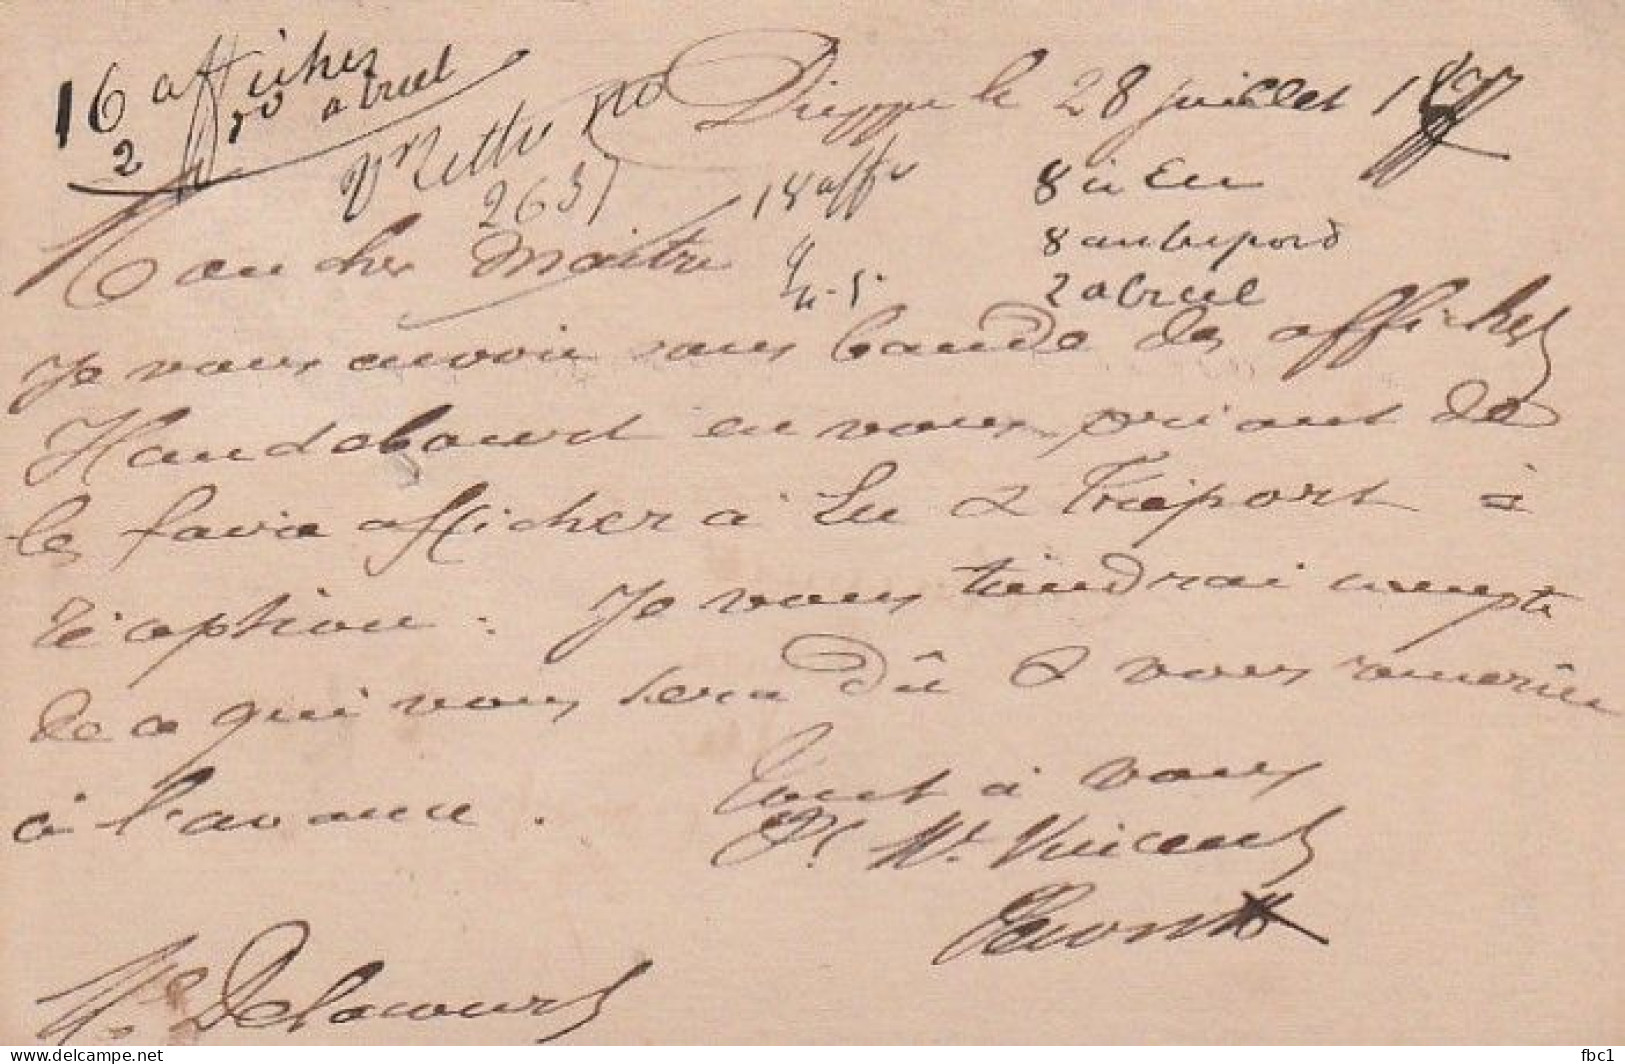 16 affiches
2 do a breel
Mettre no
2637
Dieppe le 28 juillet 1877
18 affr
8 à Eu
8 au treport
2 a breel
4-5
Mon cher Maître
Je vous envoie sous bande des affiches
Haudebourt en vous priant de
les faire afficher à Eu & Tréport à
réception. Je vous tiendrai compte
de ce qui vous sera dû & vous remercie
à l'avance.
Tout à vous
Pr Mr Vincent
Me Delacourt
delcampe.net
fbc1